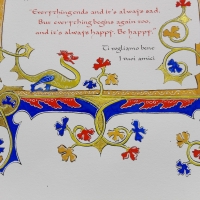 "Everything ends and it's always sad.
But everything begins again too,
and it's always happy. Be happy."
Ti vogliamo bene
I tuoi amici